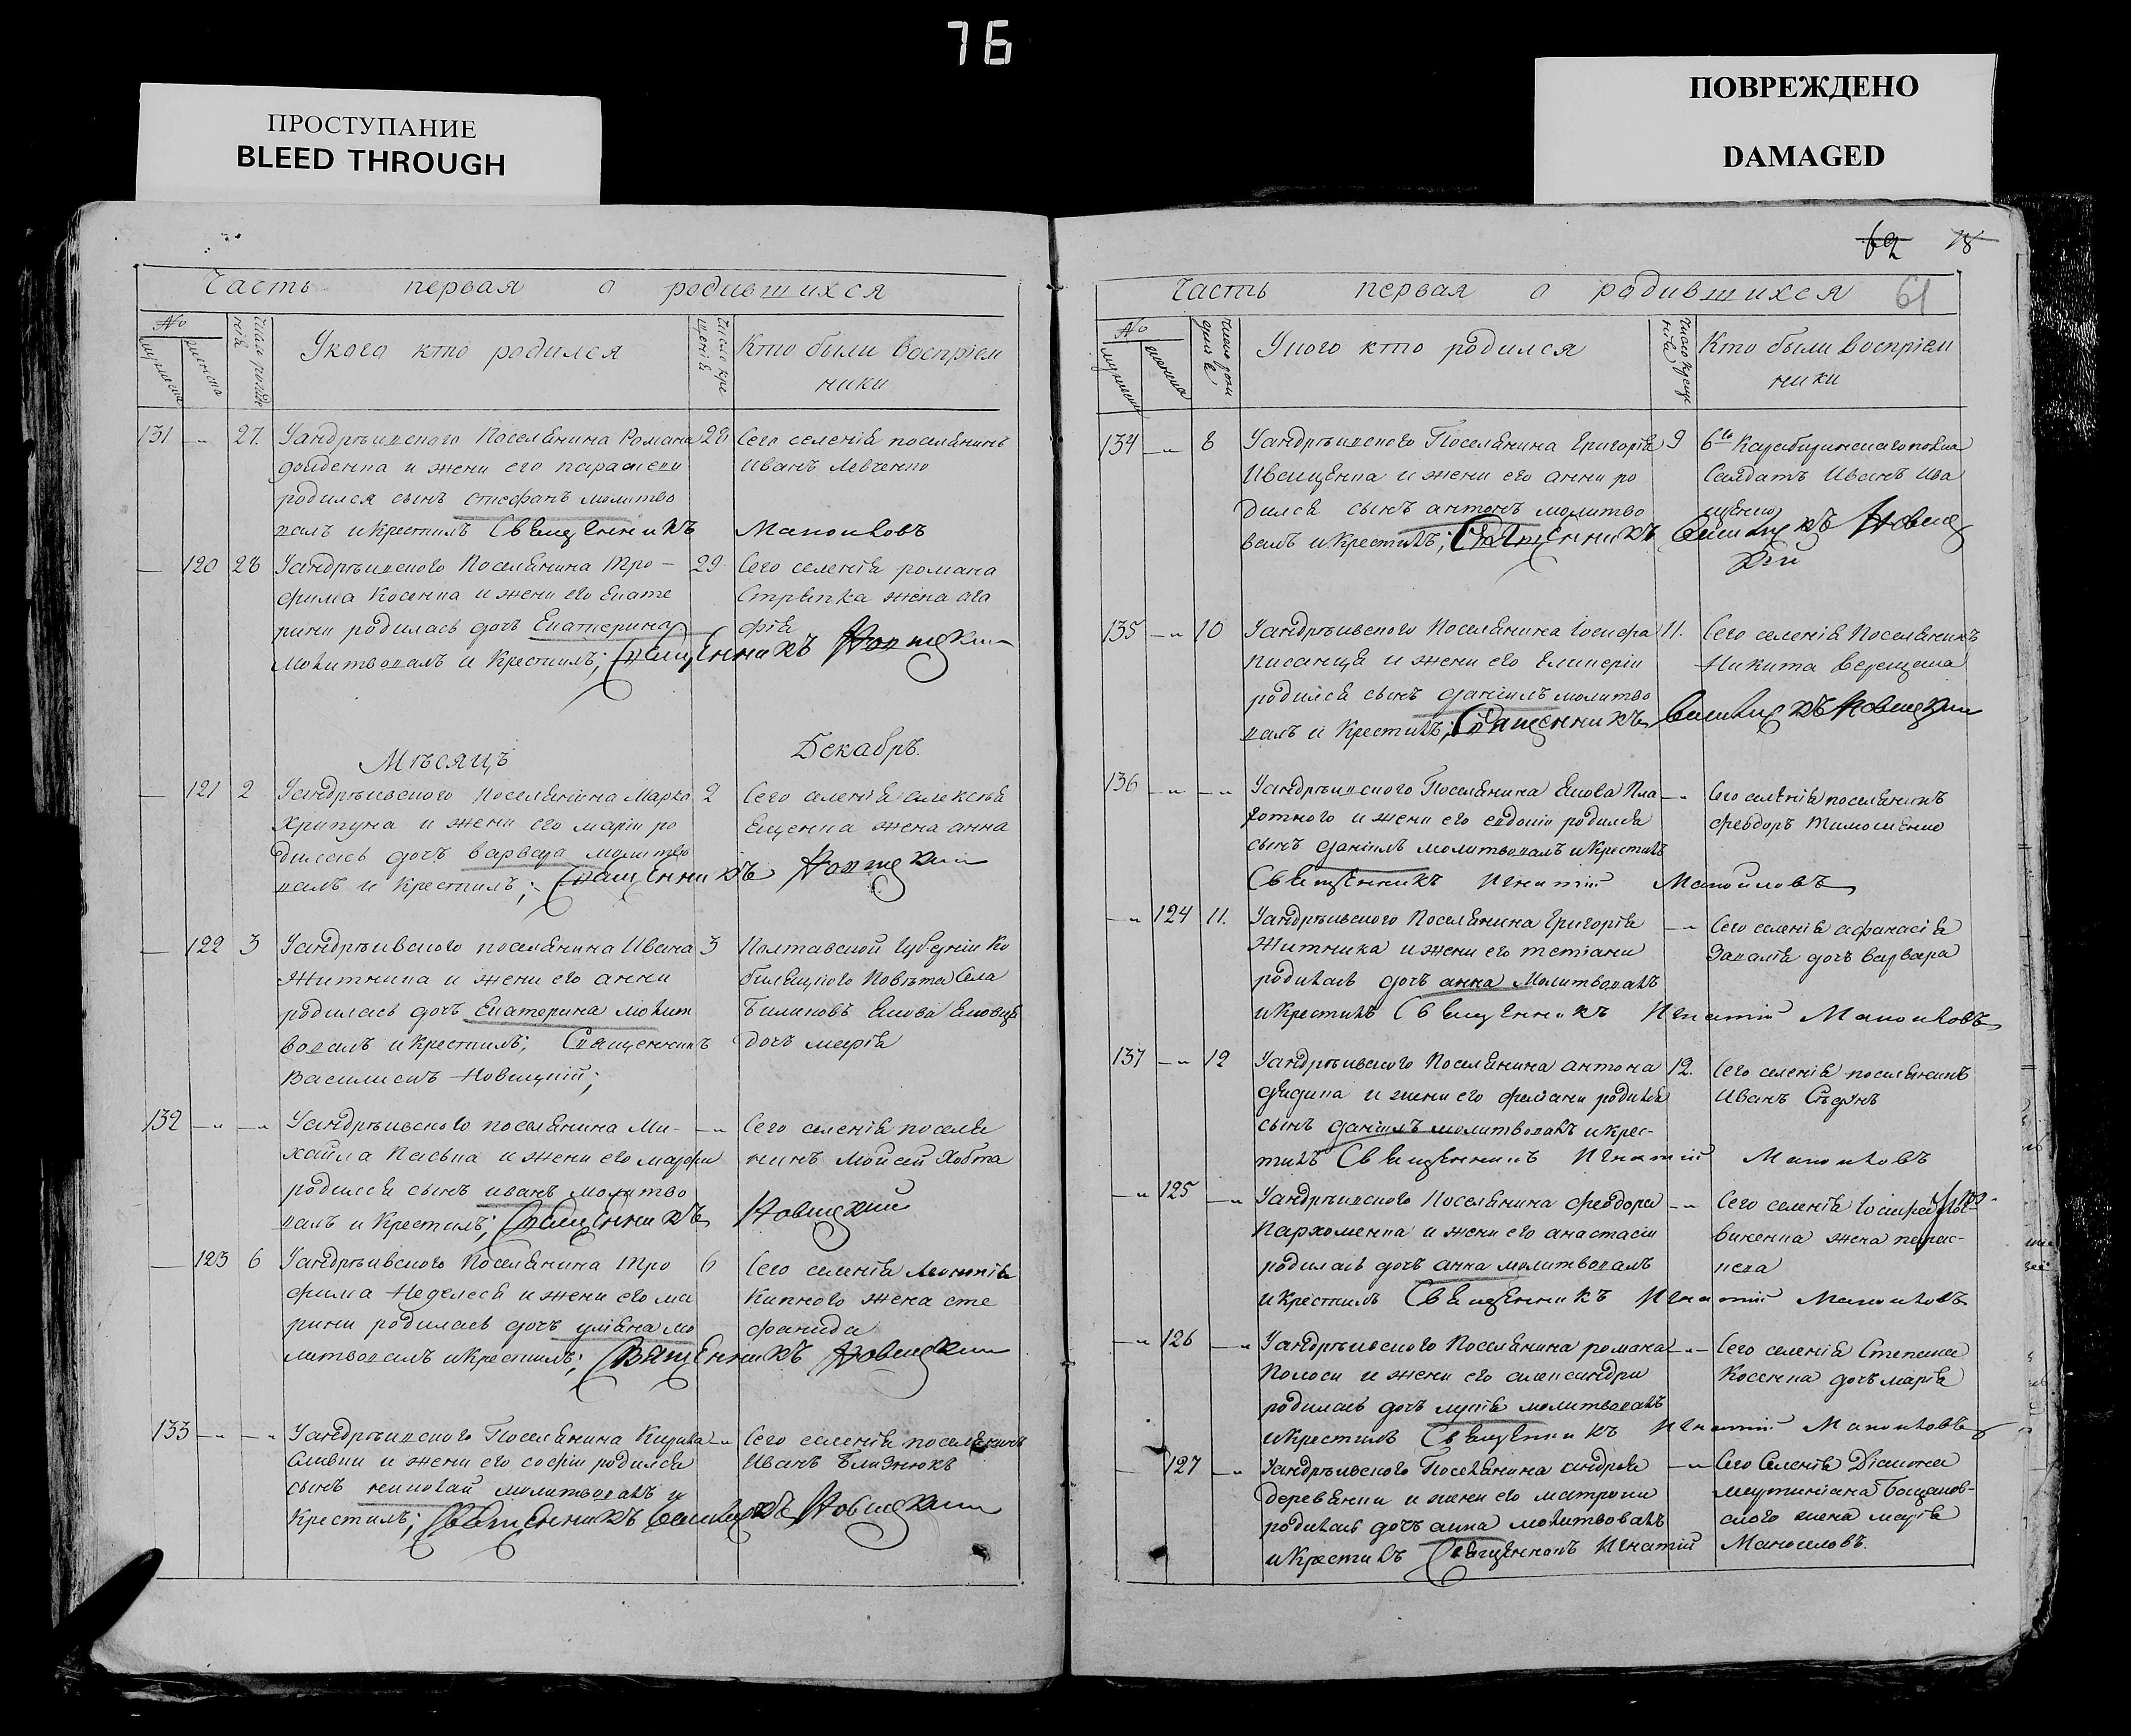 76
ПРОСТУПАНИЕ
BLEED THROUGH
ПОВРЕЖДЕНО
DAMAGED
Часть первая о родившихся
№
Укого кто родился
Кто были воспріем
ники
131 27. Уандрѣивского Поселянина Романа 28
и жени его
родился сынъ стефанъ молитво
валъ и крестилъ Священникъ
Сего селенія поселянинъ
Иванъ Левченко
Маноиловъ
120 28 Уандрѣивского Поселянина Тро- 29
фима Косенка и жени его Екате
рини родилась дочь Екатерина
Молитвовалъ и Крестилъ; Священникъ Новицкий
Сего селенія романа
жена ага
фія
Мѣсяцъ Декабрь.
121 2 Уандрѣивского поселянина Марка 2
Хрипуна и жени его маріи ро
дилась дочь варвара молитво
валъ и Крестилъ; Священникъ Новицкий
Сего селенія алексѣя
Ещенка жена анна
122 3 Уандрѣивского поселянина Ивана 3
Житника и жени его анни
родилась дочь Екатерина молит
вовалъ и крестилъ; Священникъ
Новицкий;
Полтавской Губерніи Ко
биляцкого Повѣта Села
дочь марія
132 Уандрѣивского поселянина Ми-
хайла и жени его марфи
родился сынъ иванъ молитво
валъ и Крестилъ; Священникъ Новицкий
Сего селенія поселя
нинъ Мойсей Хобта
123 6 Уандрѣивского Поселянина Тро 6
фима и жени его ма
рини родилась дочь уліяна мо
литвовалъ и крестилъ; Священникъ Новицкий
Сего селенія
жена сте
фанида
133 Уандрѣивского Поселянина Кирила
Сливки и жени его софіи родился
сынъ николай молитвовалъ и
Крестилъ; Священникъ Новицкий
Сего селенія поселянинъ
Иванъ Близнюкъ
62 18
61
Часть первая о родившихся
№
Уного кто родился
Кто были воспріем
ники
134 8 Уандрѣивского Поселянина Григорія 9
Иващенка и жени его анни ро
дился сынъ антонъ молитво
валъ и крестилъ; Священникъ
Салдатъ Иванъ Ива
щенко
135 10 Уандрѣивского Поселянина Іосифа 11.
и жени его
родился сынъ даніилъ молитво
валъ и Крестилъ; Священникъ Новицкий
Сего селенія Поселянинъ
Никита Верещака
136 Уандрѣивского Поселянина Якова Пла
хотного и жени его евдокіи родился
сынъ даніилъ молитвовалъ и крестилъ
Священникъ Игнатій Маноиловъ
Сего селенія поселянинъ
феодоръ Тимошенко
124 11. Уандрѣивского Поселянина Григорія
Житника и жени его тетіани
родилась дочь анна Молитвовалъ
и крестилъ Священникъ Игнатій Маноиловъ
Сего селенія афанасія
дочь варвара
137 12 Уандрѣивского Поселянина антона 12.
и жени его родился
сынъ даніилъ молитвовалъ и крес-
тилъ Священникъ Игнатій Маноиловъ
Сего селенія поселянинъ
Иванъ
125 Уандрѣивского Поселянина феодора
Пархоменка и жени его анастасіи
родилась дочь анна молитвовалъ
и крестилъ Священникъ Игнатій Маноиловъ
Сего селенія Іосифа
жена
126 Уандрѣивского Поселянина романа
Колоси и жени его александри
родилась дочь молитвовалъ
и крестилъ Священникъ Игнатій Маноиловъ
Сего селенія Степана
Косенка дочь марія
127 Уандрѣивского Поселянина андрея
деревянки и жени его матрони
родилась дочь анна молитвовалъ
и крестилъ Священникъ Игнатій Маноиловъ.
Сего Селенія Діакона
жена марія